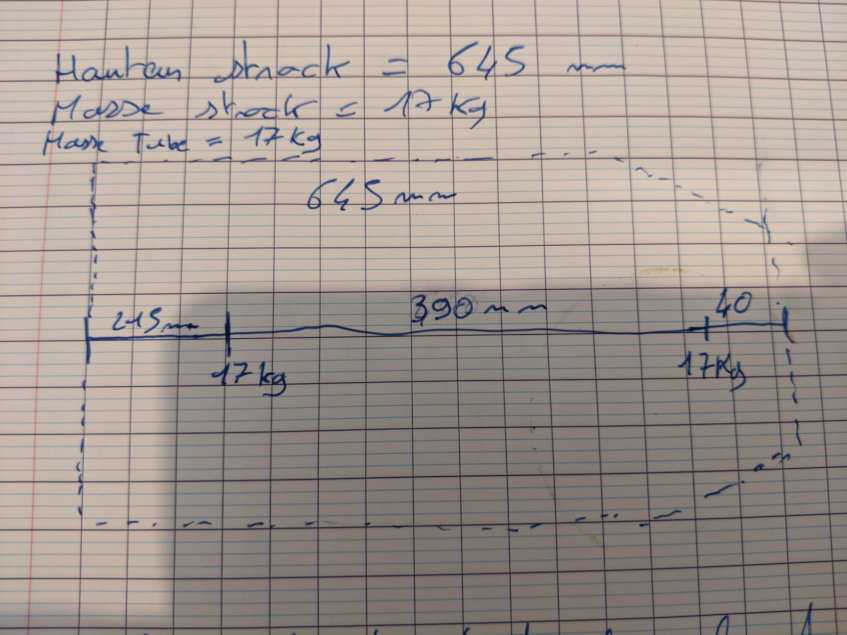 Hauteur strock = 645 mm
Masse strock = 17 Kg
Masse Tube = 17 Kg
645 mm
215 mm 390 mm 40
17 kg 17 Kg